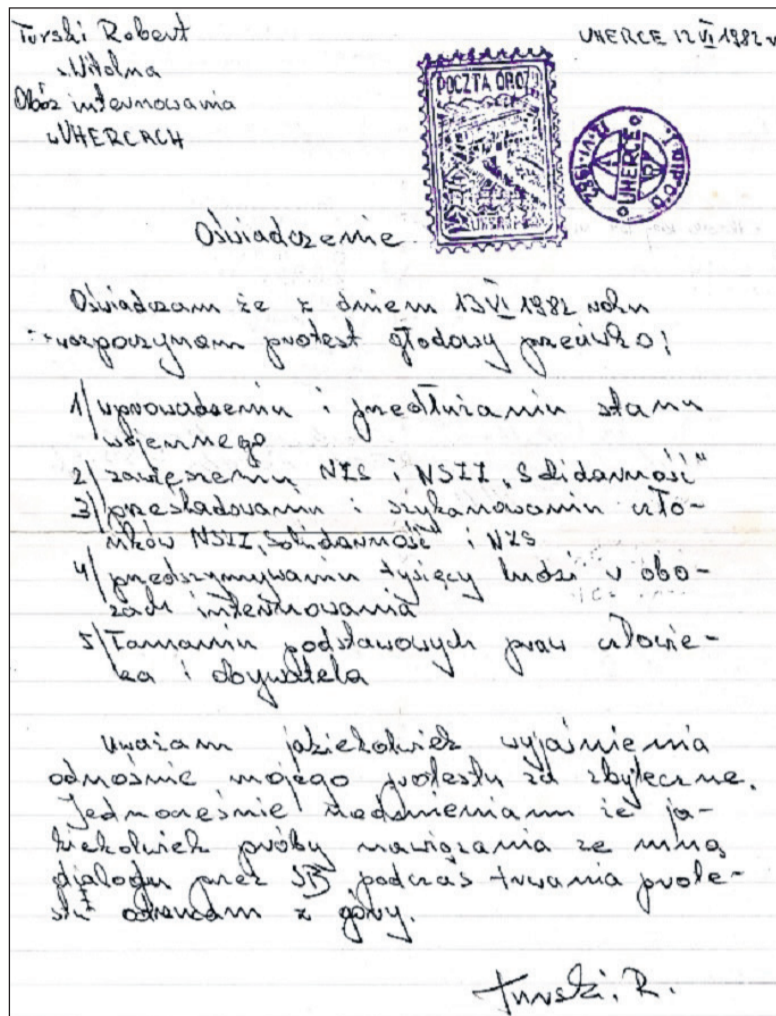 Turski Robert
s. Witolda
Obóz internowania
w UHERCACH
UHERCE 12 VI 1982 r
POCZTA OBOZ
UHERCE
Oświadczenie
Oświadczam że z dniem 13 VI 1982 roku
rozpoczynam protest głodowy przeciwko:
1/ wprowadzeniu i przedłużaniu stanu
wojennego
2/ zawieszeniu NZS i NSZZ „Solidarność"
3/ prześladowaniu i szykanowaniu człon-
ków NSZZ „Solidarność" i NZS
4/ przetrzymywaniu tysięcy ludzi w obo-
zach internowania
5/ łamaniu podstawowych praw człowie-
ka i obywatela
Uważam jakiekolwiek wyjaśnienia
odnośnie mojego protestu za zbyteczne.
Jednocześnie nadmieniam że ja-
kiekolwiek próby nawiązania ze mną
dialogu przez SB podczas trwania prote-
stu odrzucam z góry.
Turski. R.